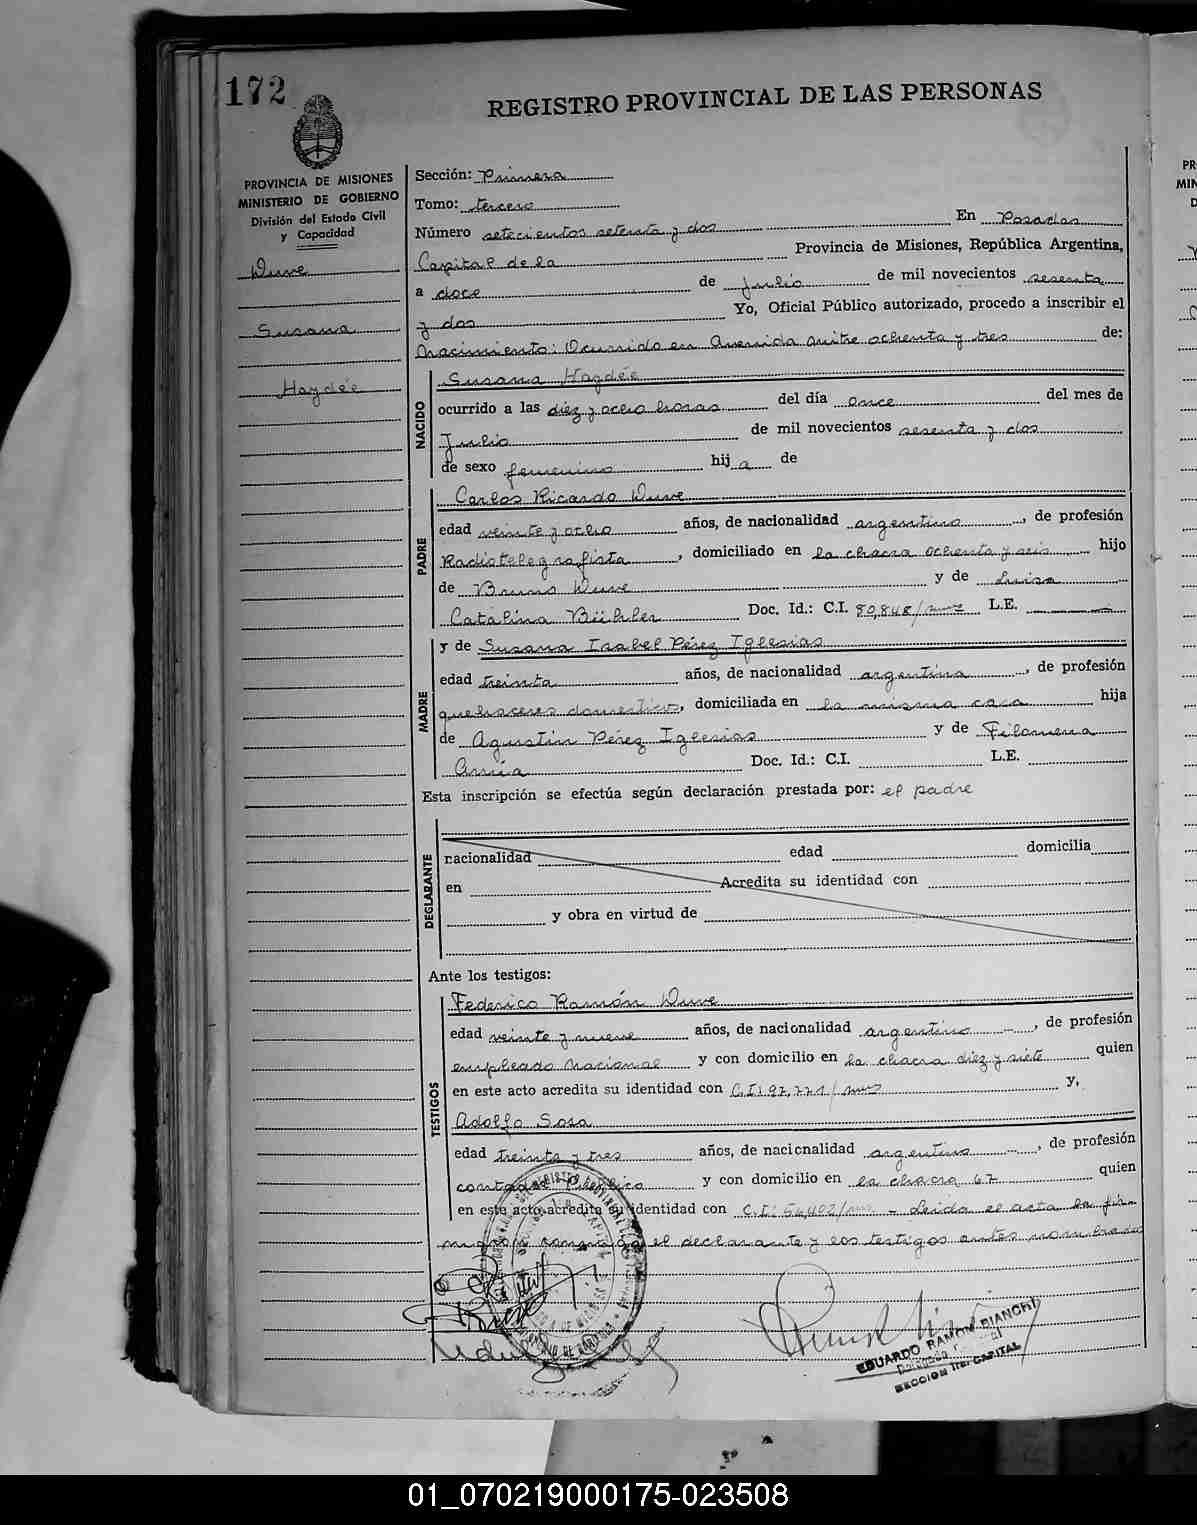 172
REGISTRO PROVINCIAL DE LAS PERSONAS
PROVINCIA DE MISIONES
MINISTERIO DE GOBIERNO
División del Estado Civil
y Capacidad
Wuve
Susana
Haydée
Sección: Primera
Tomo: tercero
Número setecientos setenta y dos En Posadas
Capital de la Provincia de Misiones, República Argentina,
a doce de Julio de mil novecientos sesenta
y dos Yo, Oficial Público autorizado, procedo a inscribir el
Nacimiento: Ocurrido en Avenida Mitre ochenta y tres de:
NACIDO
Susana Haydée
ocurrido a las diez y ocho horas del día once del mes de
Julio de mil novecientos sesenta y dos
de sexo femenino hij a de
PADRE
Carlos Ricardo Wuve
edad veinte y ocho años, de nacionalidad argentino, de profesión
Radiotelegrafista, domiciliado en la chacra ochenta y seis hijo
de Bruno Wuve y de Luisa
Catalina Büchler Doc. Id.: C.I. 80,848/mnes L.E.
MADRE
y de Susana Isabel Pérez Iglesias
edad treinta años, de nacionalidad argentina, de profesión
quehaceres domesticos, domiciliada en la misma casa hija
de Agustin Pérez Iglesias y de Filomena
Doc. Id.: C.I. L.E.
Esta inscripción se efectúa según declaración prestada por: el padre
DECLARANTE
nacionalidad edad domicilia
en Acredita su identidad con
y obra en virtud de
Ante los testigos:
TESTIGOS
Federico Ramón Wuve
edad veinte y nueve años, de nacionalidad argentino, de profesión
empleado Nacional y con domicilio en la chacra diez y siete quien
en este acto acredita su identidad con C.I: 97,771/mnes y,
Adolfo Sosa
edad treinta y tres años, de nacionalidad argentino, de profesión
contador Público y con domicilio en la chacra 67 quien
en este acto acredita su identidad con C.I: 54,402/mnes - Leida el acta la fir-
maron conmigo el declarante y los testigos antes nombrados
EDUARDO RAMON BIANCHI
SECCION CAPITAL
PR
MIN
D
01_070219000175-023508